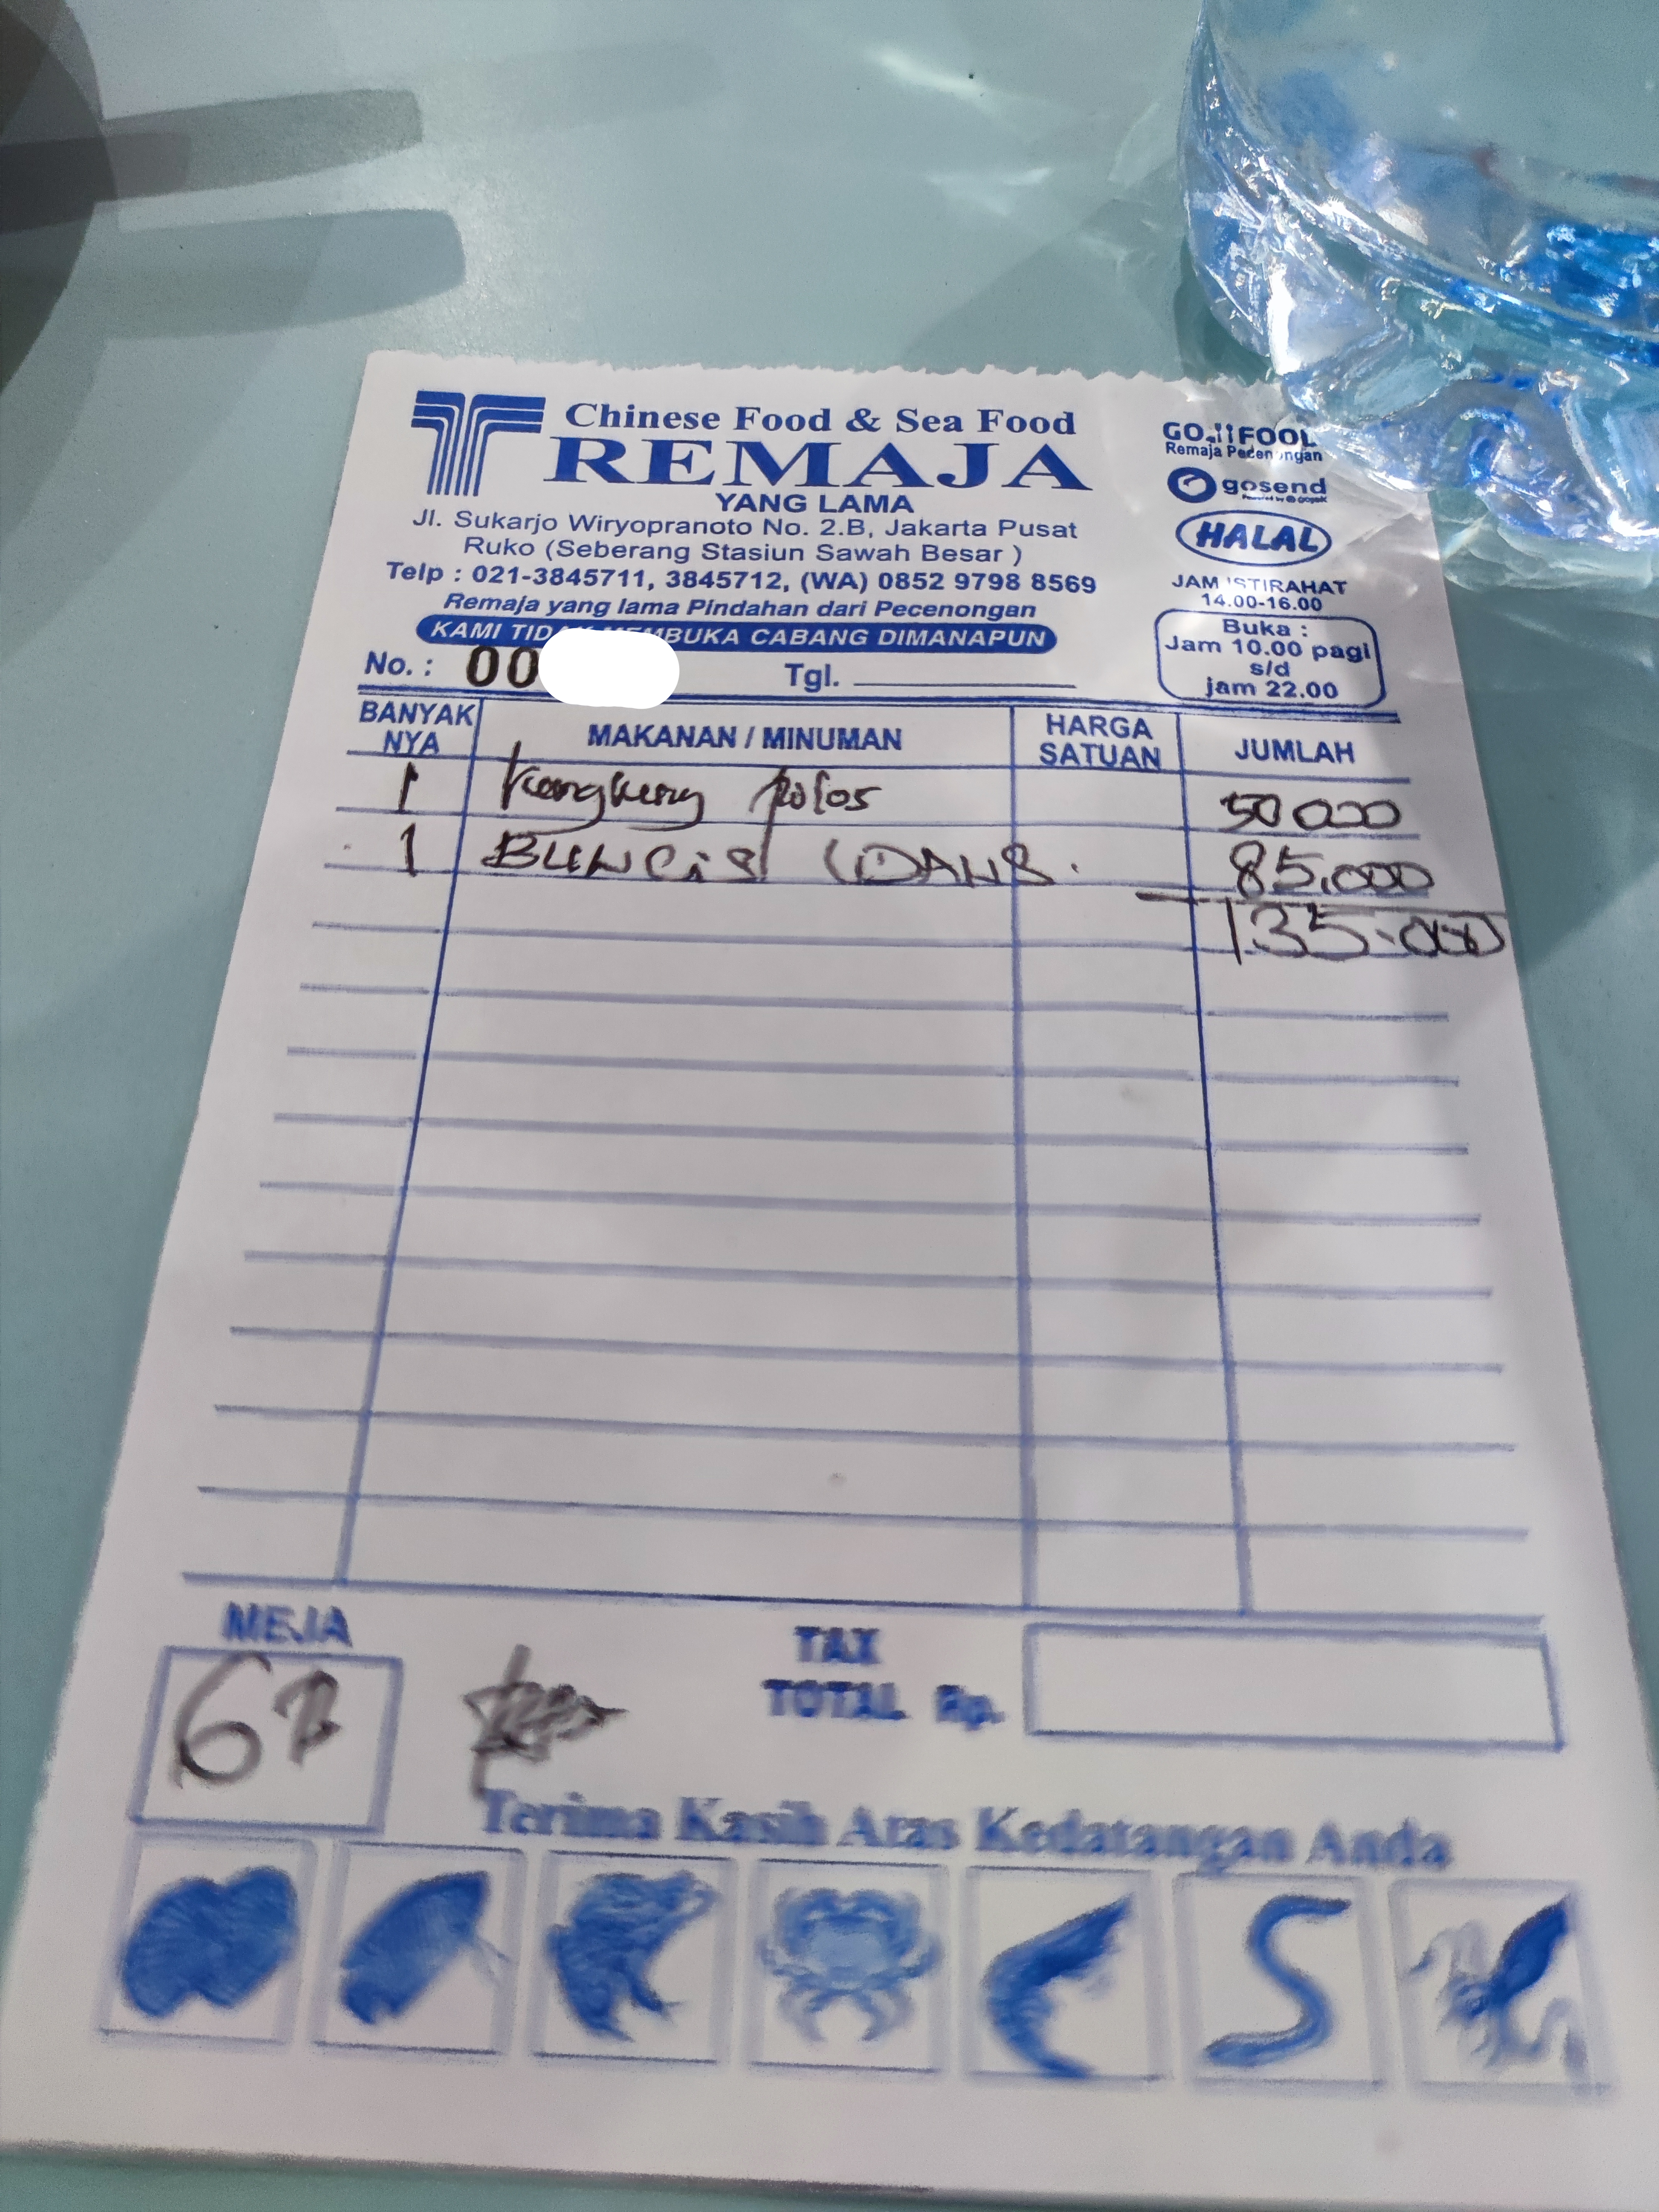 Chinese Food & Sea Food
REMAJA
YANG LAMA
Jl. Sukarjo Wiryopranoto No. 2.B, Jakarta Pusat
Ruko (Seberang Stasiun Sawah Besar )
Telp : 021-3845711, 3845712, (WA) 0852 9798 8569
Remaja yang lama Pindahan dari Pecenongan
KAMI TIDAK MEMBUKA CABANG DIMANAPUN
GOFOOD
Remaja Pecenongan
gosend
Powered by gojek
HALAL
JAM ISTIRAHAT
14.00-16.00
Buka :
Jam 10.00 pagi
s/d
jam 22.00
No. : 00
Tgl.
BANYAK NYA MAKANAN / MINUMAN HARGA SATUAN JUMLAH
1 Kangkung polos 50 000
1 BUNCIS 85,000
135.000
MEJA
TAX
TOTAL Rp.
Terima Kasih Atas Kedatangan Anda